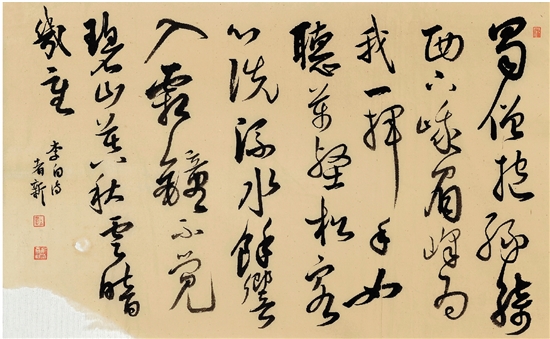 蜀僧抱綠綺
西下峨眉峰为
我一挥手如
聽萬壑松客
心洗流水餘響
入霜鐘不觉
碧山暮秋雲暗
幾重
李白诗
者新